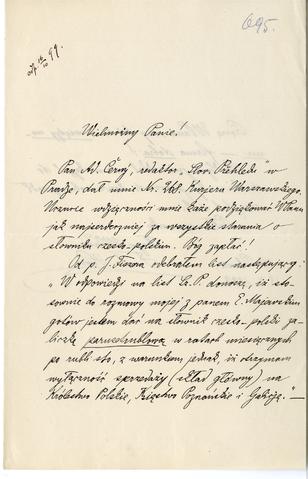 695.
odp. 14/10 99.
Wielmożny Panie!
Pan Ad. Černý, redaktor „Slov. Přehledu" w
Pradze, dał mnie Nr. 268. Kurjera Warszawskiego.
Uczucie wdzięczności mnie każe podziękować WPanu
jak najserdeczniej za wszystkie starania o
słowniku czesko-polskim. Bóg zapłać!
Od p. J. Fiszera odebrałem list następujący:
„W odpowiedzi na list Sz. P. donoszę, iż sto-
sownie do rozmowy mojej z panem E. Majewskim
gotów jestem dać na słownik czesko-polski za-
liczkę paruset rublową w ratach miesięcznych
po rubli sto, z warunkiem jednak, iż otrzymam
wyłączność sprzedaży (skład główny) na
Królestwo Polskie, Księstwo Poznańskie i Galicję."